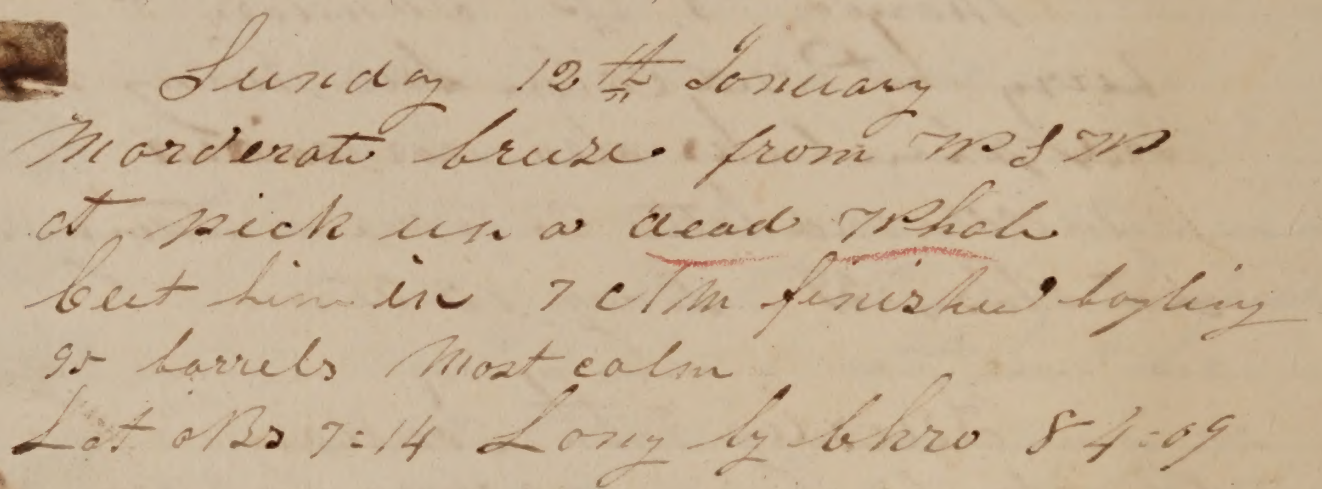 Sunday 12th January
Morderate breeze from W S W
at pick up a dead Whale
cut him in 7 AM finished boyling
90 barrels Most calm
Lat obs 7=14 Long by Chro 84=09